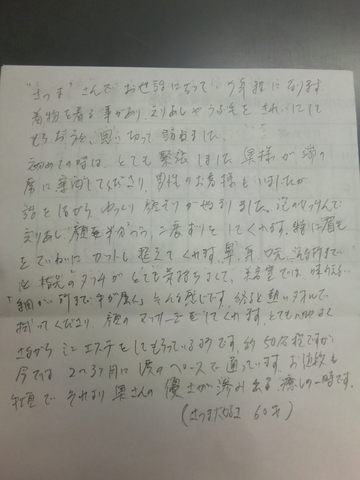 "さつま"さんで お世話になって 9年程になります
着物を着る事があり えりあしやうぶ毛を きれいにして
もらおうと、思い切って 訪ねました。
初めての時は、とても 緊張しました 奥様が 窓の
席に 案内してくださり、男性のお客様も いましたが
話を しながら ゆっくり 顔そりが 始まりました。
えりあし 顔 半分づつ 二度おりと してくれます。特に 眉毛
を ていねいに カットも 整えて くれます。鼻、耳 口元
指先の タッチが とても 気持ちよくて、美容室では、味わえない
「細かい所まで手が届く」そんな感じです。 熱いタオルで
拭いてくださり、顔の マッサージをしてくれます。とても 心地よく
さながら ミニエステを してもらっている様です。約50分程ですが
今では 2〜3ヶ月に 一度のペースで 通っています。お値段も
それより 奥さんの 優しさが 滲み出る 癒しの一時です。
60才)